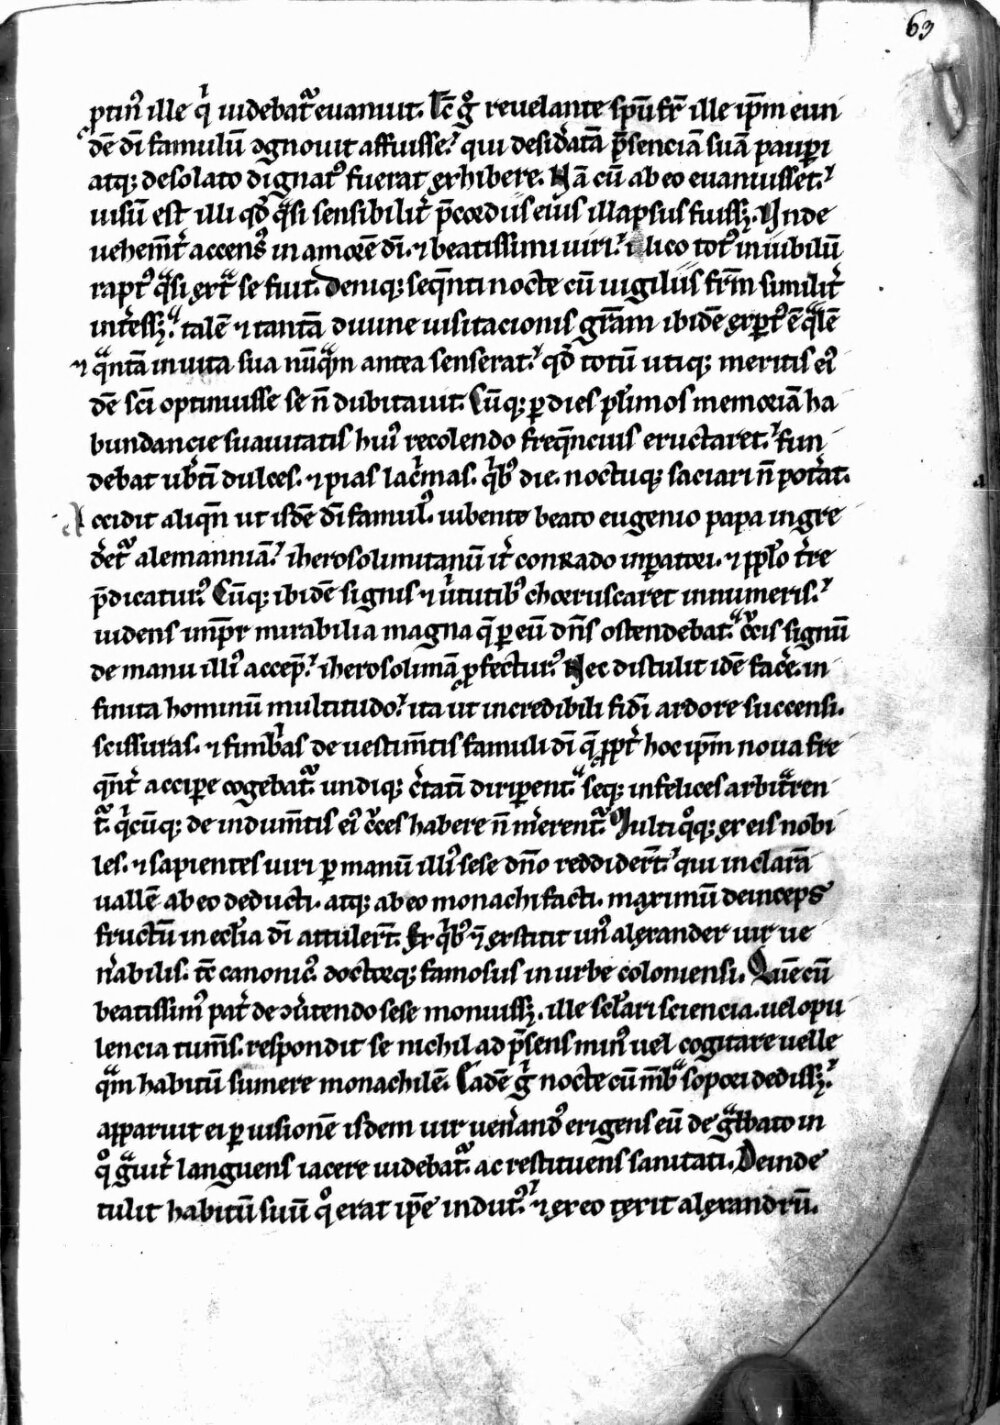 63
ptin⁹ ille q̇ uidebat᷑ euanuit. Tc̄ gͦ reuelante spū fr̄ ille ip̄m eun
dē dī famulū ꝯgnouit affuisse.' qui desid̓atā p̄senciā suā paup̲i
atq; desolato dignat⁹ fuerat exhibere. Nā cū ab eo euanuisset.'
uisū est illi qd̓ qᵃsi sensibilit̓ p̄cordiis eius illapsus fuissꝫ. Vnde
uehem̄t̓ accens⁹ in amorē dī. ⁊ beatissimi uiri.' ilico tot⁹ in iubilū
rapt⁹ qᵃsi extᵃ se fuit. Deniq; seq̄nti nocte cū uigiliis fr̄m similit̓
int̓essꝫ.' talē ⁊ tantā diuine uisitacionis gr̄am ibidē expt⁹ ē qᵃlē
⁊ qᵃntā in uita sua nūqᵃm antea senserat.' qd̓ totū utiq; meritis ei⁹
dē sc̄i optinuisse se n̄ dubitauit. Cūq; ꝑ dies pl̓imos memoriā ha
bundancie suauitatis hui⁹ recolendo freq̄ncius eructaret.' fun
debat ub̓tī dulces. ⁊ pias lac̓mas. q̇b⁹ die. noctuq; saciari n̄ pot̓at.
Accidit aliqn̄ ut isdē dī famul⁹. iubente beato eugenio papa ingre
d̓et᷑ alemanniā.' iherosolimitanū it̓ conrado inꝑatori. ⁊ pp̄lo t̓re
p̄dicatur⁹. Cūq; ibidē signis ⁊ u̓tutib⁹ choruscaret innumeris.'
uidens inp̄r mirabilia magna q̄ ꝑ eū dn̄s ostendebat.' c̓cis signū
de manu illi⁹ accep̄.' iherosolimā ꝓfectur⁹. Nec distulit idē fac̓e. in
finita hominū multitudo.' ita ut incredibili fidī ardore succensi.
scissuras. ⁊ fimb̓as de uestim̄tis famuli dī q̄ ꝓpt̓ hoc ip̄m noua fre
q̄nt̓ accipe cogebat᷑. undiq; c̓tatī diriperent.' seq; infelices arbitᵃren
t᷑. q̇cūq; de indum̄tis ei⁹ c̓ces habere n̄ m̓erent᷑. Multi qͦq; ex eis nobi
les. ⁊ sapientes uiri ꝑ manū illi⁹ sese dn̄o reddider̄t.' qui in clarā
uallē ab eo deducti. atq; ab eo monachi facti. maximū deinceps
fructū in ecl̓ia dī attuler̄t. Ex q̇b⁹ ⁊ exstitit un⁹ alexander uir ue
n̓abilis. tc̄ canonic⁹. doctorq; famosus in urbe coloniensi. Quē cū
beatissim⁹ pat̓ de ꝯu̓tendo sese monuissꝫ. ille scl̓ari sciencia. uel opu
lencia tum̄s. respondit se nichil ad p̄sens min⁹ uel cogitare uelle
qᵃm habitū sumere monachilē. Eadē g̓ nocte cū m̄bᵃ sopori dedissꝫ.'
apparuit ei ꝑ uisionē isdem uir uen̓and⁹ erigens eū de gᵃbbato in
qͦ gᵃuit̓ languens iacere uidebat᷑. ac restituens sanitati. Deinde
tulit habitū suū qͦ erat ip̄e indut⁹.' ⁊ ex eo texit alexandrū.